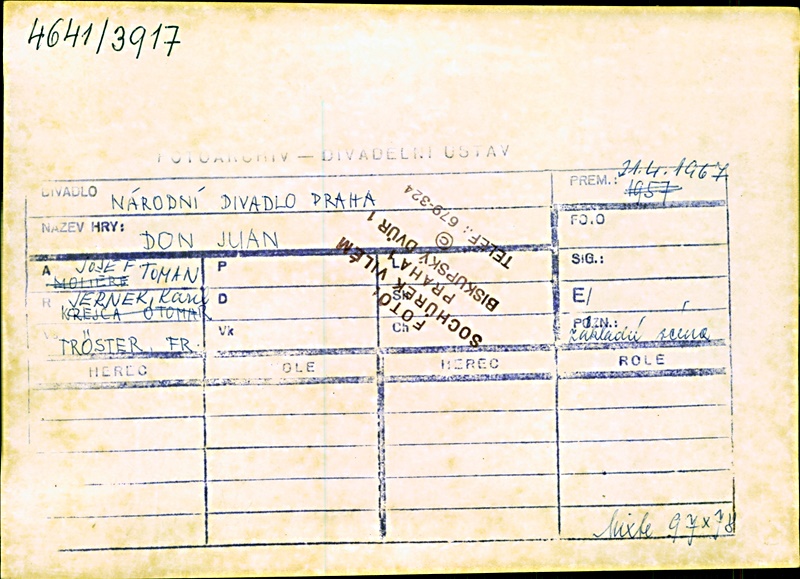 4641/3917
FOTOARCHIV — DIVADELNÍ ÚSTAV
DIVADLO NÁRODNÍ DIVADLO PRAHA
PREM.: 21.4.1967
1957
NÁZEV HRY: DON JUAN
FO.O
A JOSEF TOMAN
MOLIÈRE
P
SIG.:
R JERNEK, Karel
KREJČA OTOMAR
D
Sk
E/
TRÖSTER, FR.
Vk
Ch
POZN.:
základní scéna
HEREC
OLE
HEREC
ROLE
FOTO
SOCHŮREK VILÉM
PRAHA 1
BISKUPSKÝ DVŮR 1
©
TELEF.: 679-324
97x78